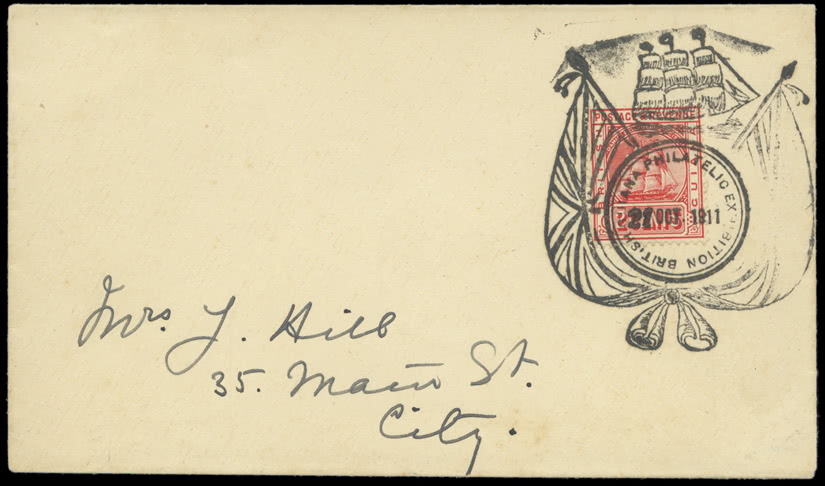 POSTAGE & REVENUE
BRITISH GUIANA PHILATELIC EXHIBITION
OCT 1911
2 CENTS
Mrs J. Hill
35. Main St.
City.